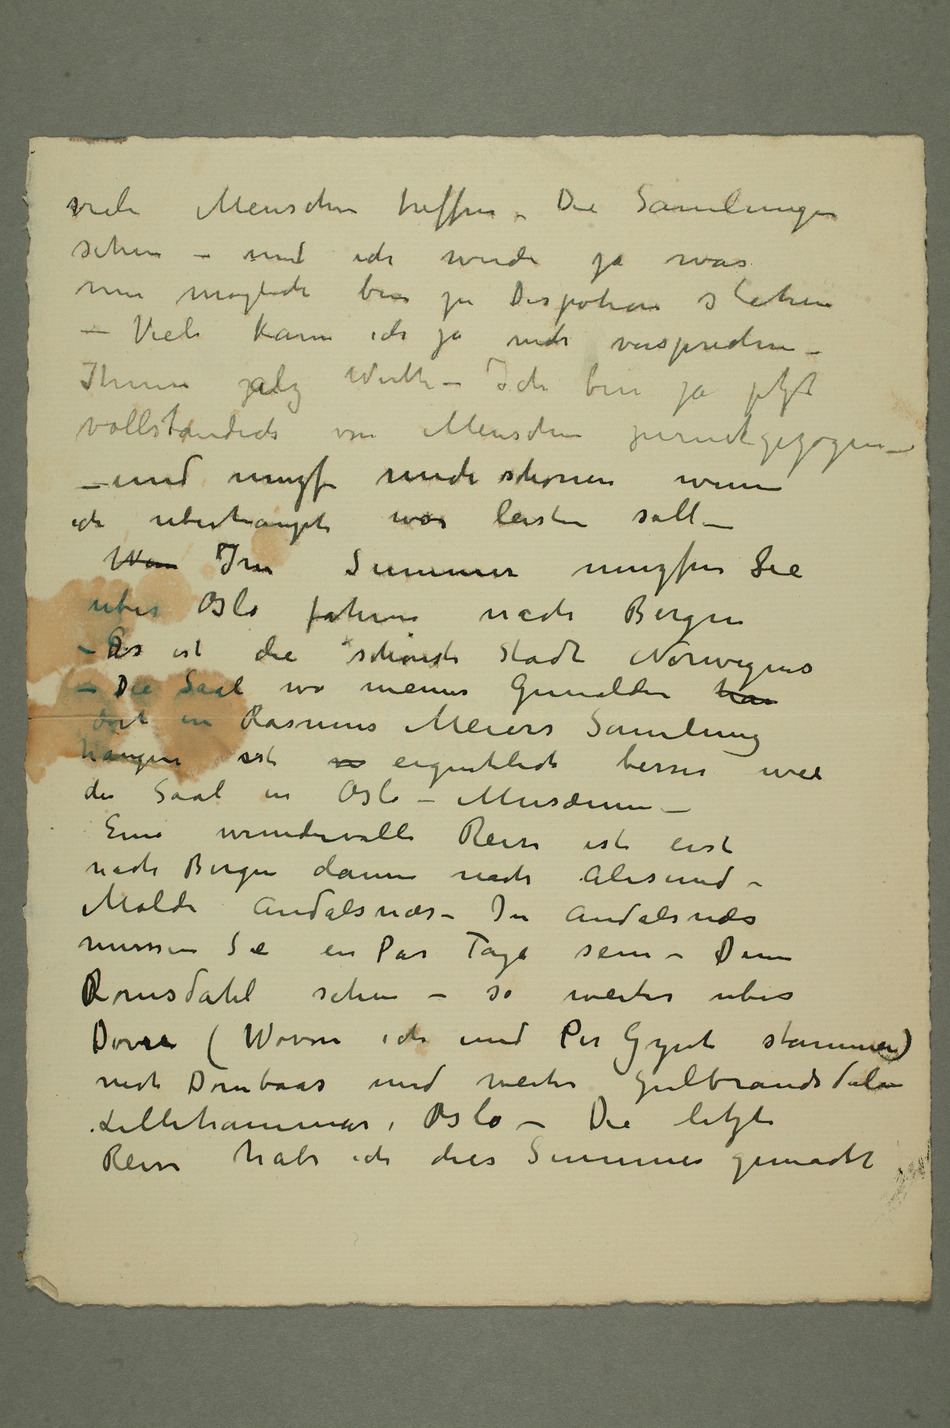 viele Menschen treffen – Die Samlungen
sehen – und ich werde ja was
mir moglich bin zu Dispotion stehen
– Viele kann ich ja nich versprechen –
Ich bin ja jetzt
vollstandich von Menschen zuruckgezogen –
– und mich schonen wenn
ich uberhaupt was leisten soll –
Im Summer Sie
uber Oslo fahren nach Bergen
– Das ist die schonste Stadt Norwegens
– Die Saal wo meine Gemalden
dort in Rasmus Meiers Samlung
hangen ist eigentlich besser wie
die Saal in Oslo – Musæum –
Eine wundervolle Reise ist erst
nach Bergen dann nach Alesund –
Molde Andalsnæs – In Andalsnæs
mussen Sie ein Par Tage sein – Den
Romsdahl sehen – so weiter uber
Dovre (Wovon ich und Per Gynt stammen)
nach Dombaas und weiter Gulbrandsdalen
Lillehammer, Oslo – Die letzte
Reise habe ich dies Summer gemacht